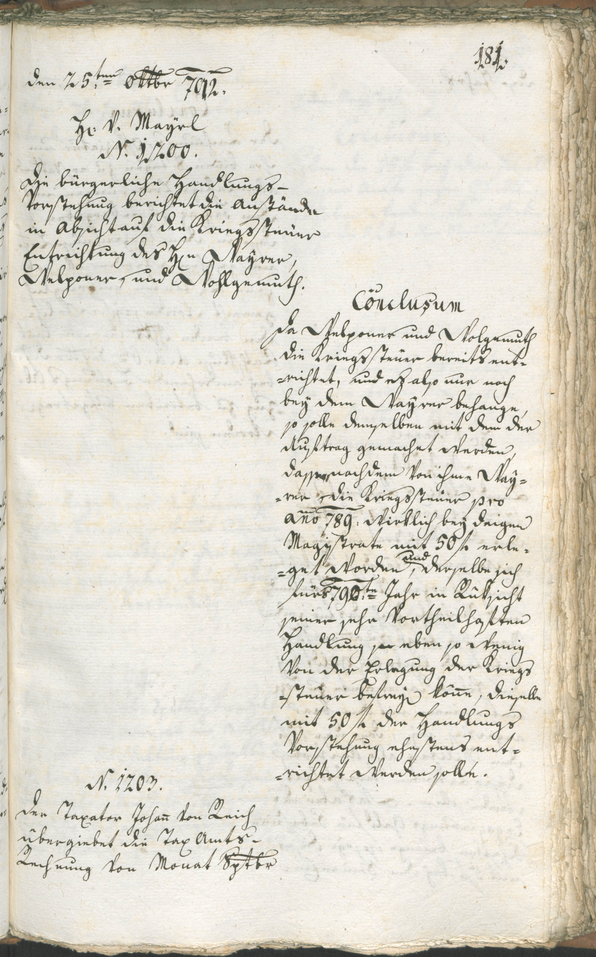 181.
den 25:ten 8ttbr 792.
H: v. Mayrl
N. 1200.
Die bürgerliche Handlungs-
Vorstehung berichtet die Anstände
in Absicht auf die Kriegssteuer
Entrichtung des H:n Mayrer,
Welponer, und Wohlgemuth.
Conclusum
Da Welponer und Wolgemuth
die Kriegssteuer bereits ent-
-richtet, und es also nur noch
bey dem Mayrer behange,
so solle demselben mit dem der
Auftrag gemacht werden,
dass nachdem von ihme May-
-rer die Kriegssteuer pro
año 789. wirklich bey daigen
Magistrate mit 50 f erle-
-get worden, und derselbe sich
fürs 790.te Jahr in Rüksicht
seiner sehr vortheilhaften
Handlung eben so wenig
von der Erlegung der Kriegs
-steuer befreye könne, dieselbe
mit 50 f der Handlungs
Vorstehung ehestens ent-
-richtet werden solle.
N. 1203.
Der Taxator Johañ von Reich
übergiebet die Tax Amts-
Rechnung von Monat Sptbr